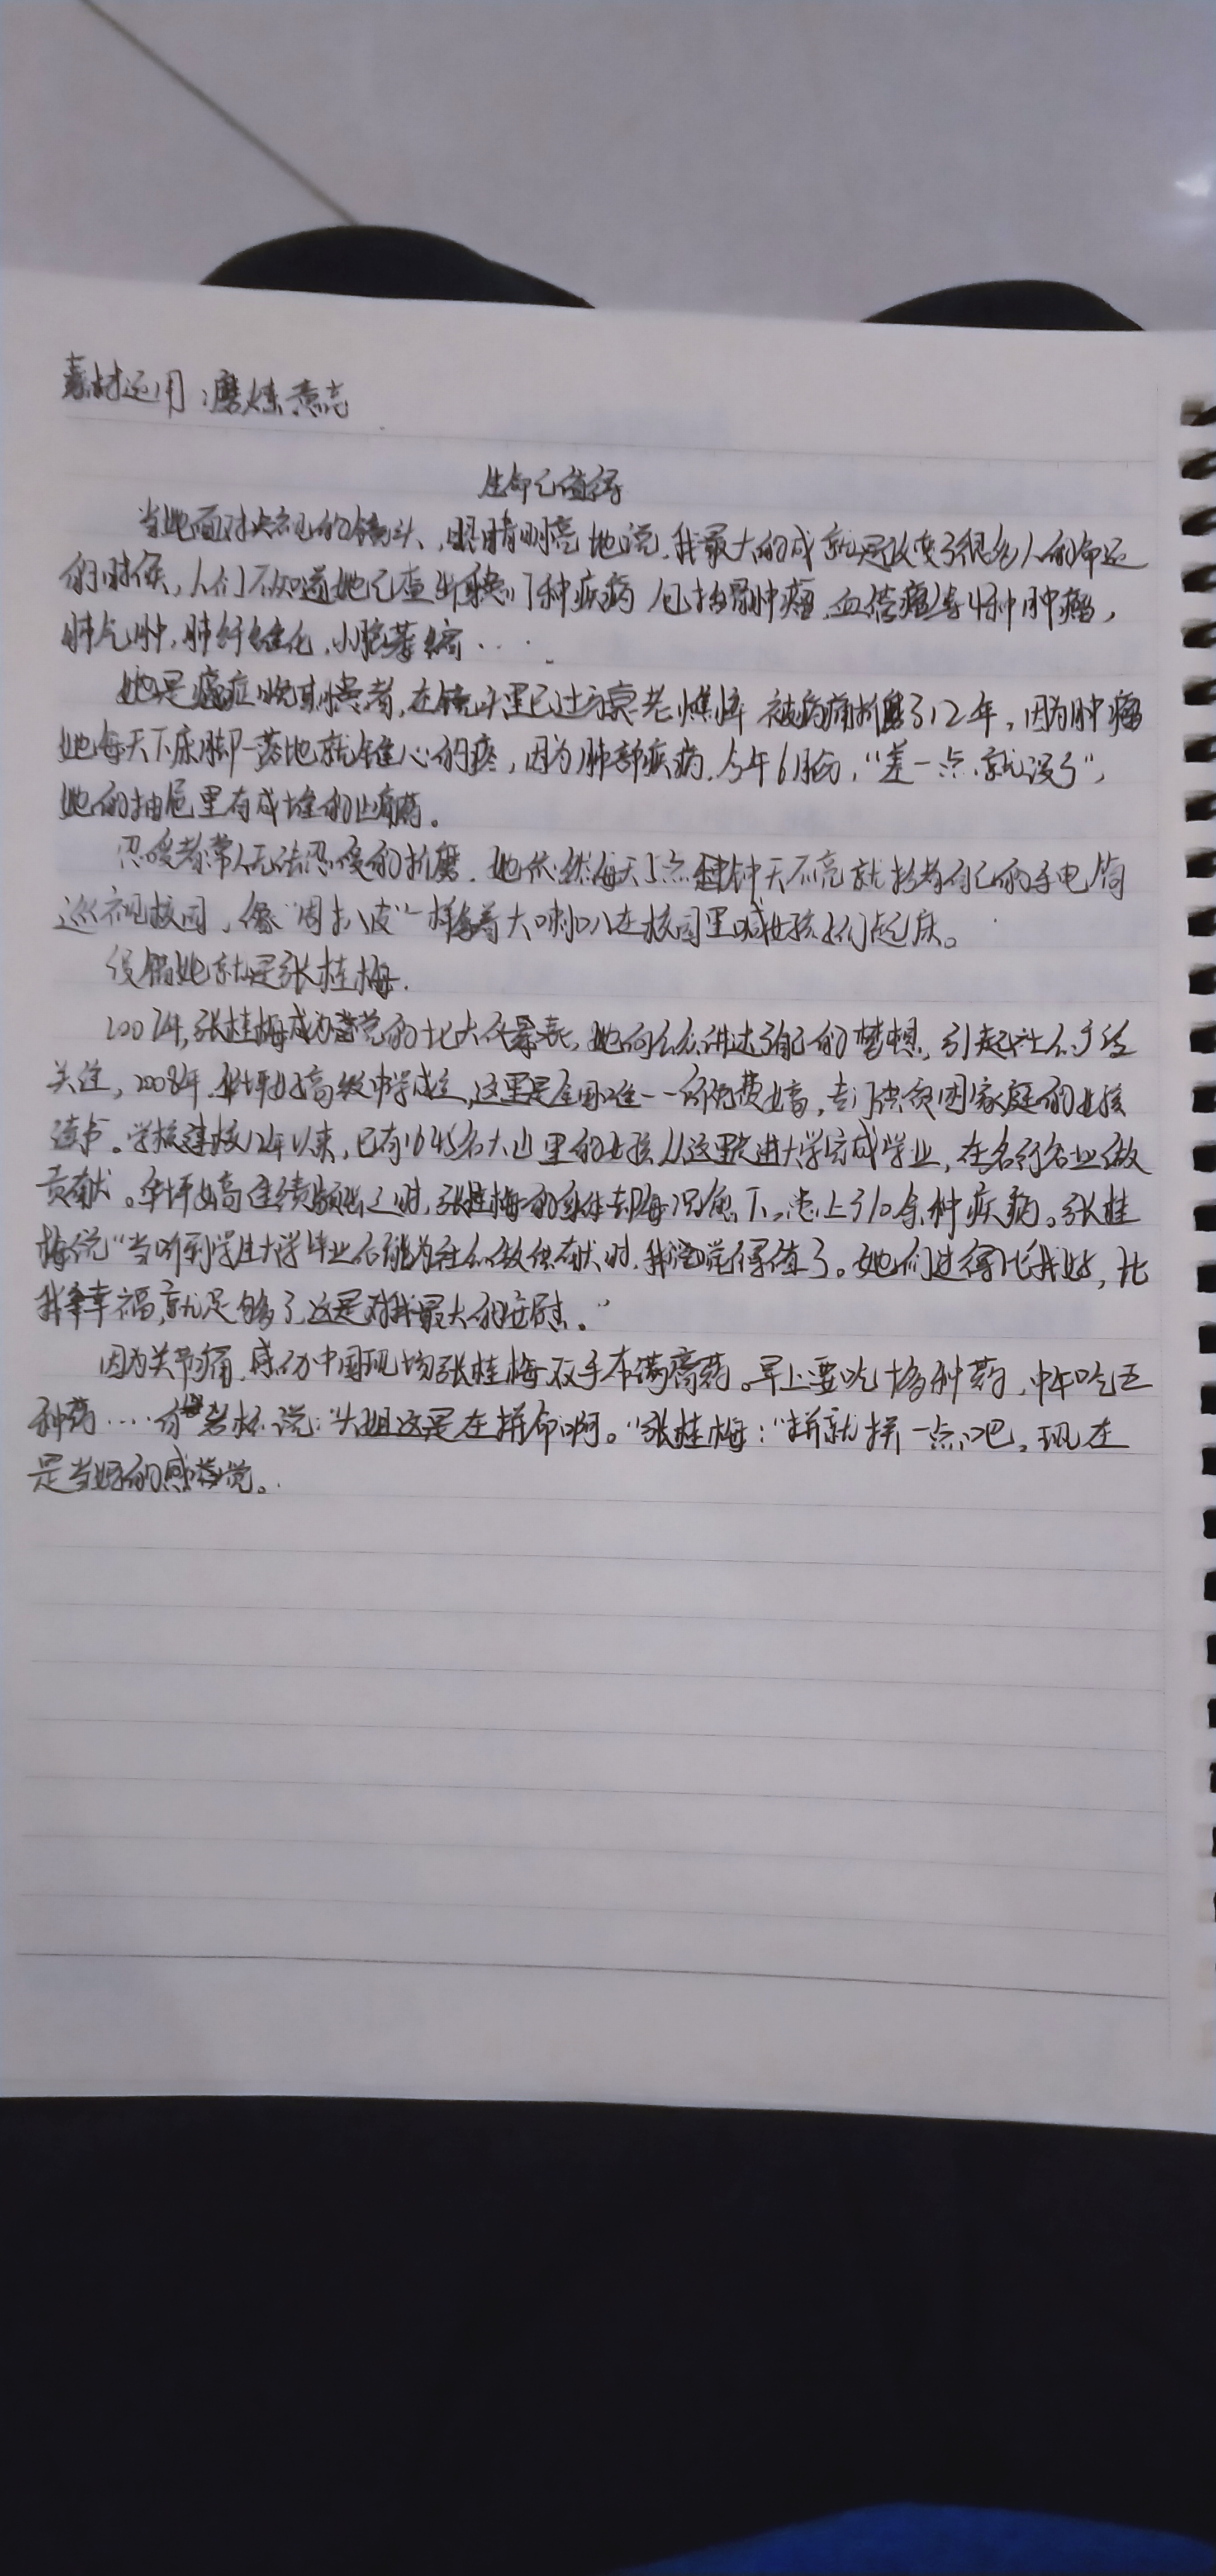 素材运用:磨炼意志
生命已值得
当她面对央视的镜头,眼睛明亮地说,我最大的成就是改变了很多人的命运
的时候,人们不知道她已查出患17种疾病 包括骨肿瘤,血管瘤等4种肿瘤,
肺气肿,肺纤维化,小脑萎缩…
她是癌症晚期患者,在镜头里已过分衰老憔悴 被病痛折磨了12年,因为肿瘤
她每天下床脚一落地就锥心的疼,因为肺部疾病,今年6月份,“差一点就没了”,
她的抽屉里有成堆的止痛药。
忍受着常人无法忍受的折磨,她依然每天5点钟天不亮就拎着自己的手电筒
巡视校园,像“周扒皮”一样拿着大喇叭在校园里喊女孩子们起床。
没错她就是张桂梅.
2007年,张桂梅成为党的十七大代表,她向公众讲述了自己的梦想,引起社会广泛
关注,2008年,华坪女子高级中学成立,这里是全国唯一一所免费女高,专门供贫困家庭的女孩
读书。学校建校12年以来,已有1645名大山里的女孩从这里走进大学完成学业,在各行各业做
贡献。华坪女高佳绩频出之时,张桂梅的身体却每况愈下,患上了10余种疾病。张桂
梅说“当听到学生大学毕业后能为社会做供献时,我觉得值了。她们过得比我好,比
我幸福,就足够了,这是对我最大的安慰。”
因为关节痛,感动中国现场张桂梅双手布满膏药。早上要吃十多种药,中午吃五
种药…… 说:“大姐这是在拼命啊。”张桂梅:“拼就拼一点吧,现在
是当妈的感觉。